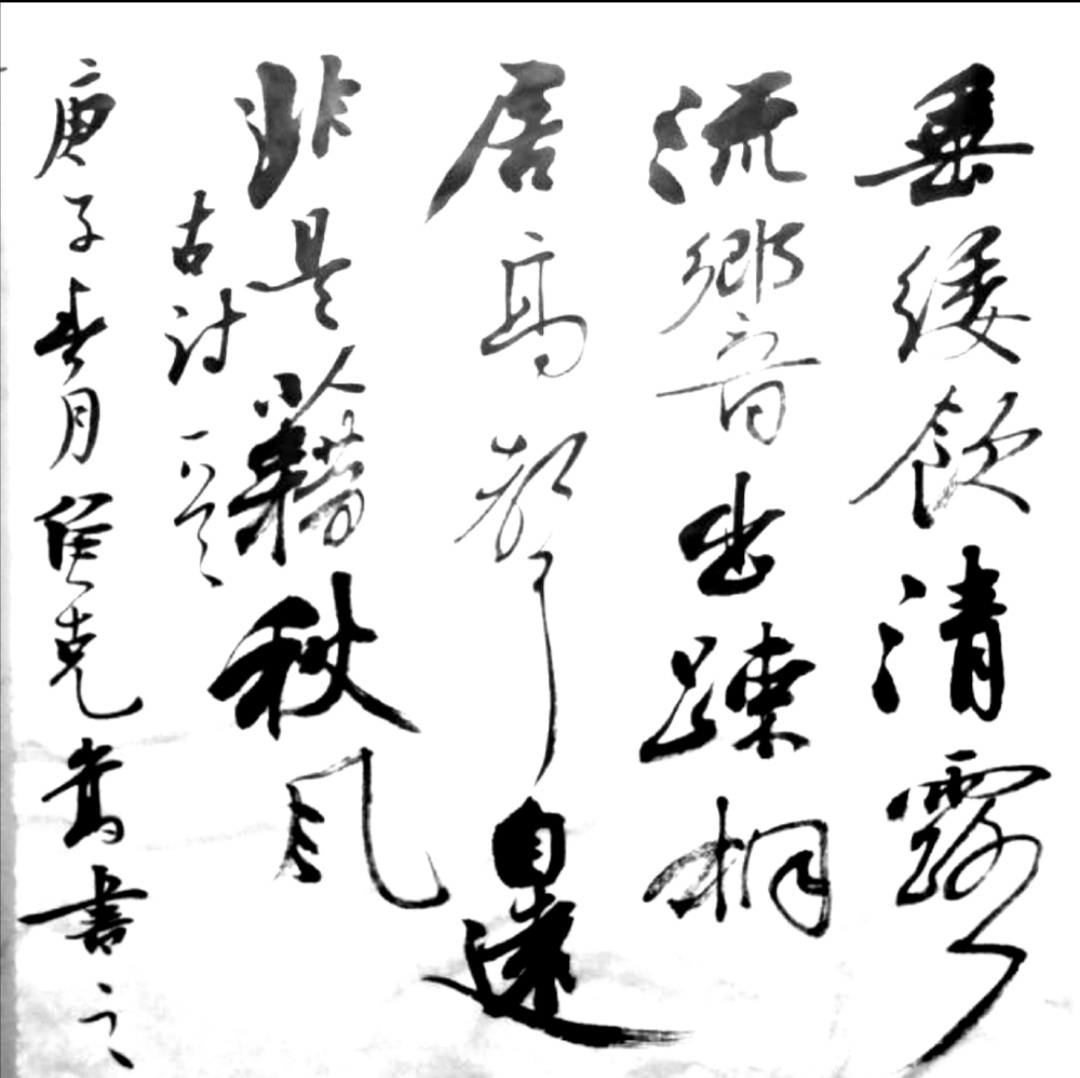 垂緌飲清露
流響出踈桐
居高聲自遠
非是籍秋風
古詩一首
庚子春月 克 書之